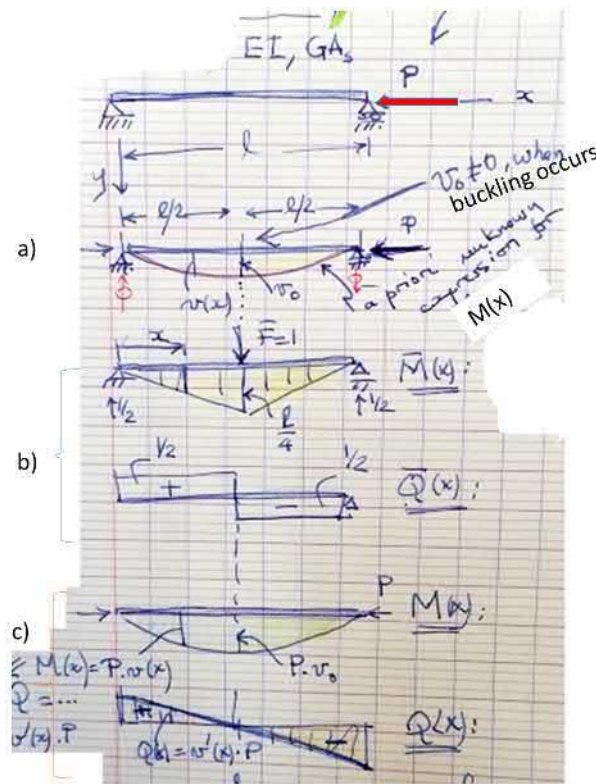 EI, GAs
P
x
l
y
v₀ ≠ 0, when
buckling occurs
l/2
l/2
a)
P
v(x)
v₀
a priori unknown
expression for
M(x)
F̄=1
x
M̄(x):
1/2
l/4
1/2
b)
1/2
1/2
+
-
Q̄(x):
P
M(x):
c)
M(x)=P.v(x)
P.v₀
Q = ...
v'(x).P
+
Q(x)=v'(x).P
-
Q(x):